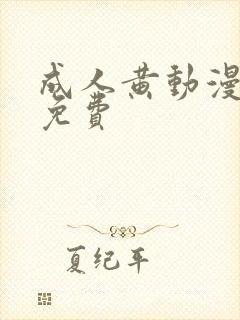 成人黄動漫
免費
夏纪年